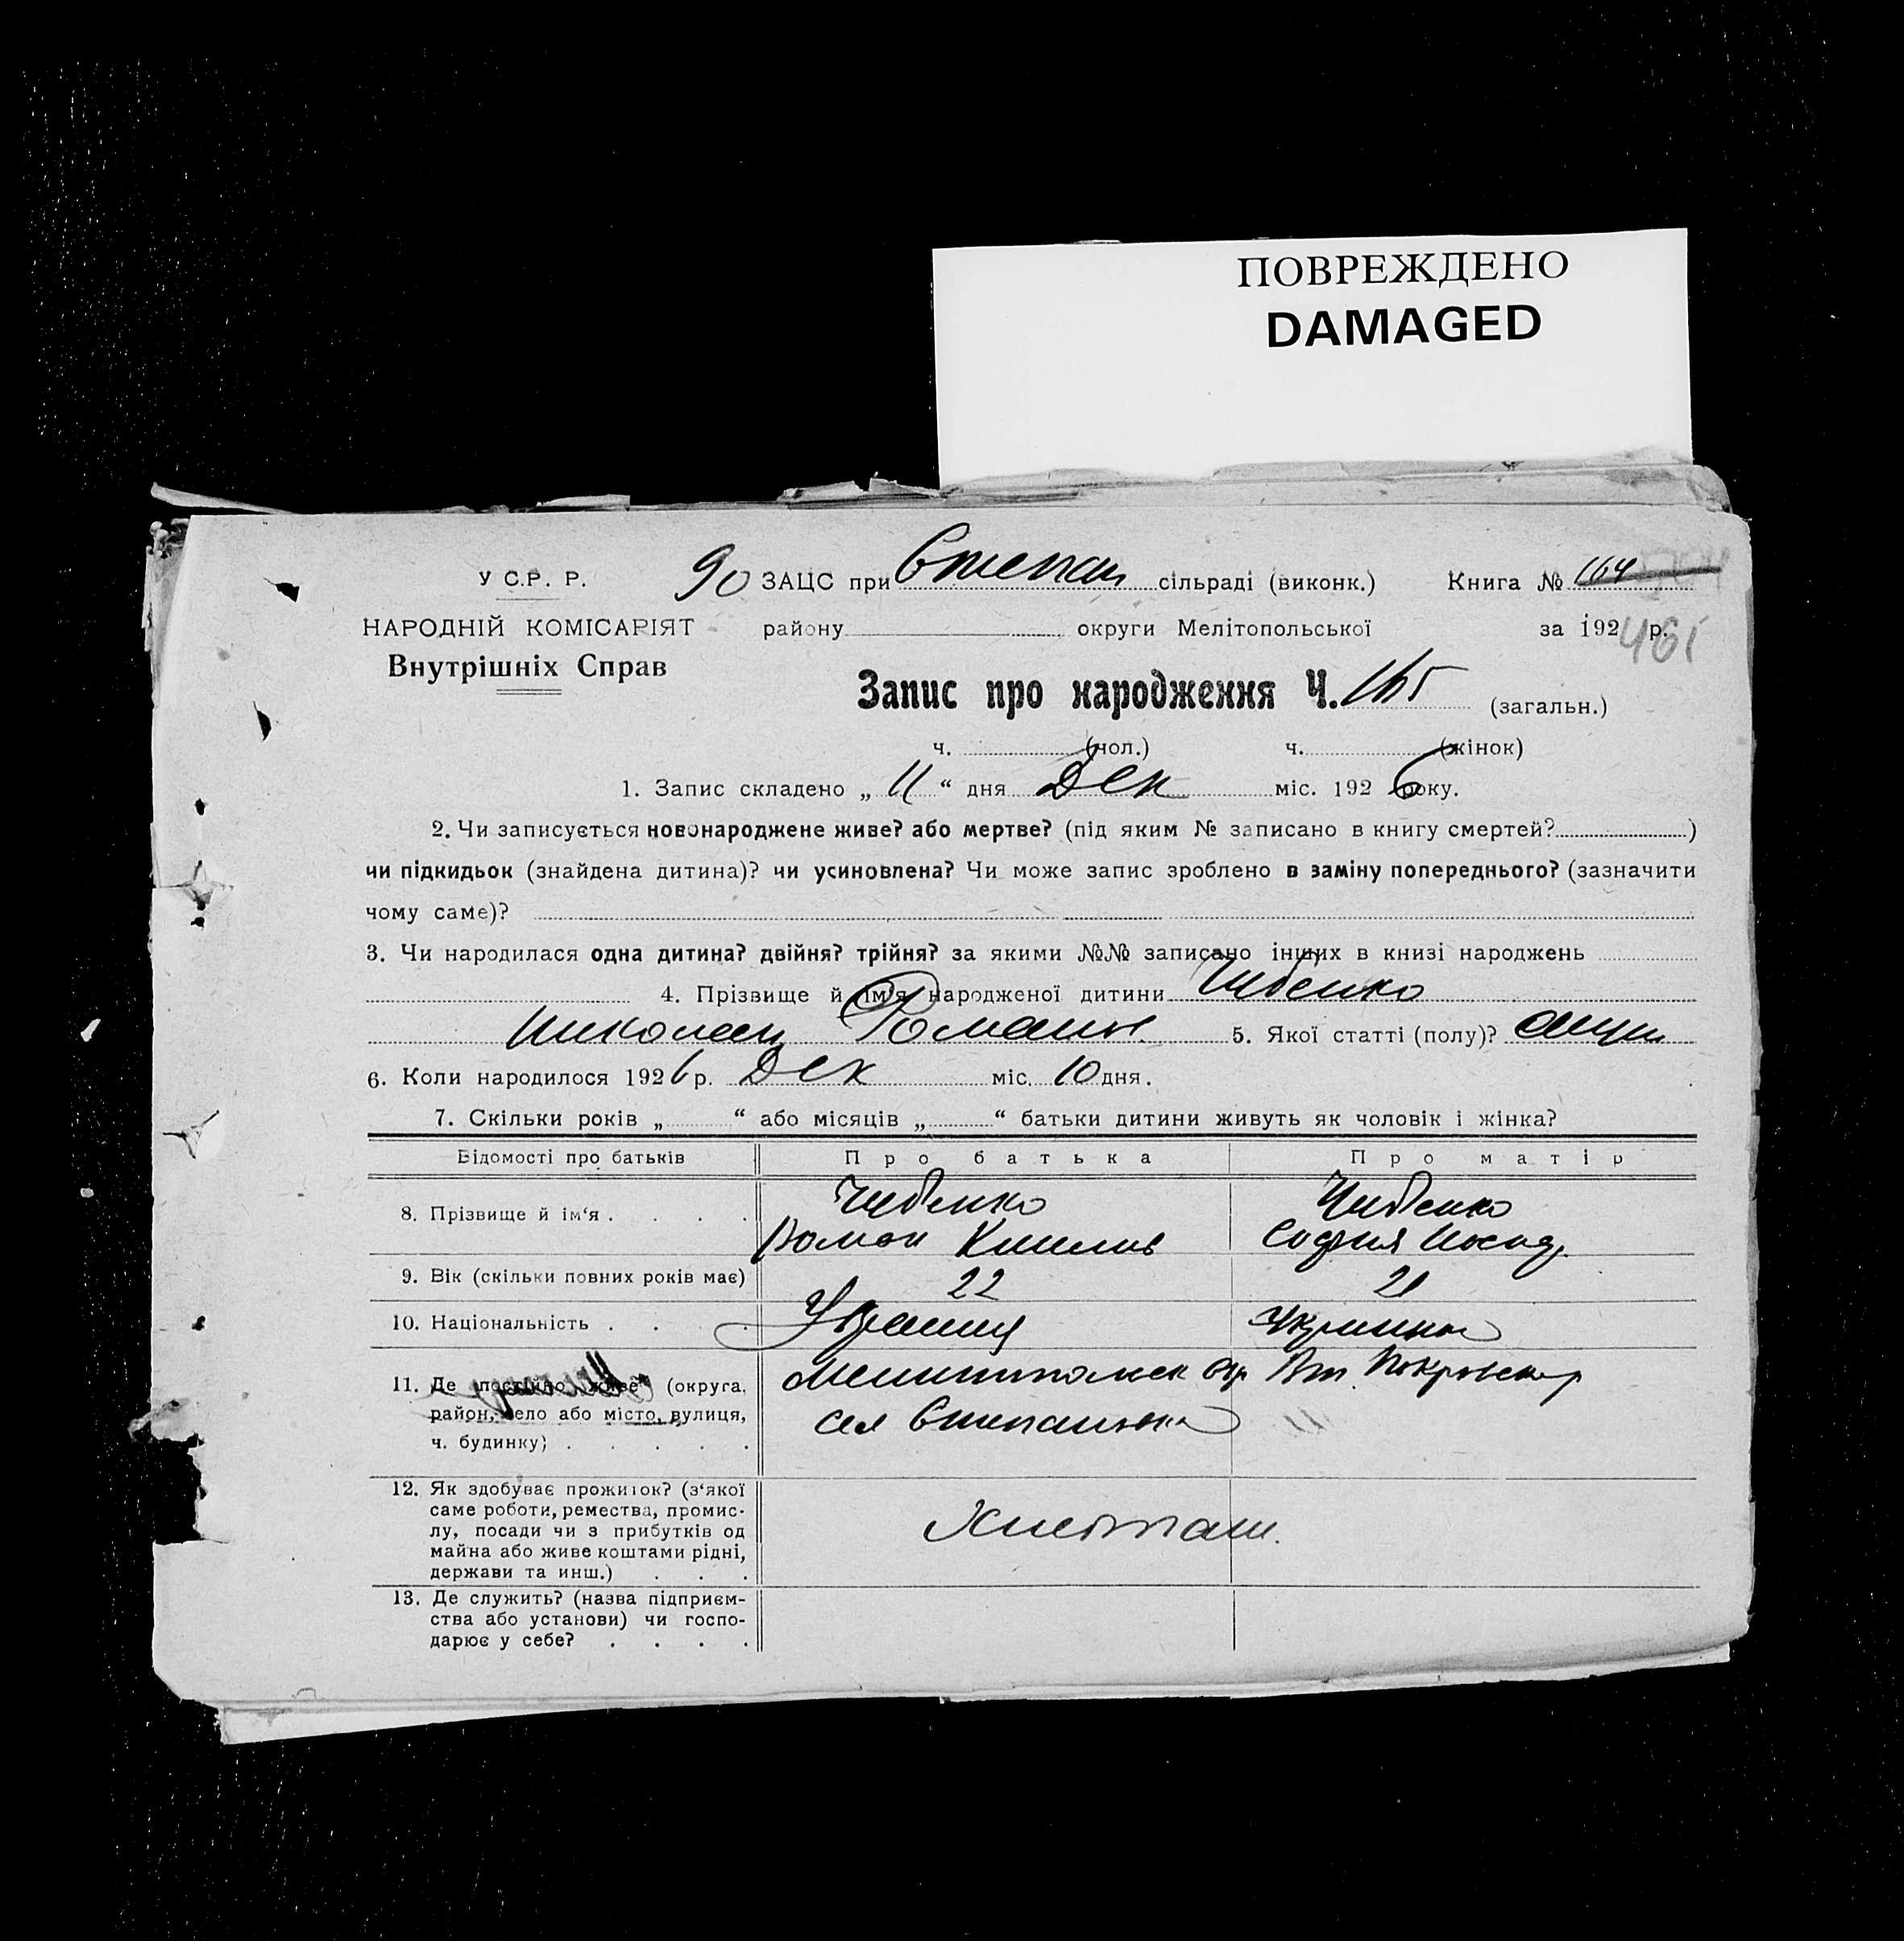 ПОВРЕЖДЕНО
DAMAGED
У С.Р. Р. 90 ЗАЦС при Степан сільраді (виконк.) Книга № 164
НАРОДНІЙ КОМІСАРІЯТ району округи Мелітопольської за 192 р. 461
Внутрішніх Справ
Запис про народження Ч. 165 (загальн.)
ч. (чол.) ч. (жінок)
1. Запис складено „ 11 “ дня Дек міс. 192 6 року.
2. Чи записується новонароджене живе? або мертве? (під яким № записано в книгу смертей? )
чи підкидьок (знайдена дитина)? чи усиновлена? Чи може запис зроблено в заміну попереднього? (зазначити
чому саме)?
3. Чи народилася одна дитина? двійня? трійня? за якими №№ записано інших в книзі народжень
4. Прізвище й ім‘я народженої дитини Чубенко
Николай Романов. 5. Якої статті (полу)?
6. Коли народилося 192 6 р. Дек міс. 10 дня.
7. Скільки років „ “ або місяців „ “ батьки дитини живуть як чоловік і жінка?
Відомості про батьків Про батька Про матір
8. Прізвище й ім‘я . . . . Чубенко Чубенко
Роман София
9. Вік (скільки повних років має) 22 21
10. Національність . . .
11. Де постійно живе (округа, Мелитопольск окр Покровскор
район, село або місто, вулиця, сел Степановка
ч. будинку) . . . . . "
12. Як здобуває прожиток? (з‘якої
саме роботи, ремества, промис-
лу, посади чи з прибутків од Хлебопаш.
майна або живе коштами рідні,
держави та инш.) . . .
13. Де служить? (назва підприєм-
ства або установи) чи госпо-
дарює у себе? . . . .